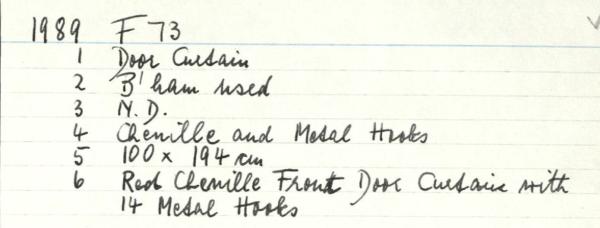 1989 F 73
1 Door Curtain
2 B'ham used
3 N.D.
4 Chenille and Metal Hooks
5 100 x 194 cm
6 Red Chenille Front Door Curtain with
14 Metal Hooks